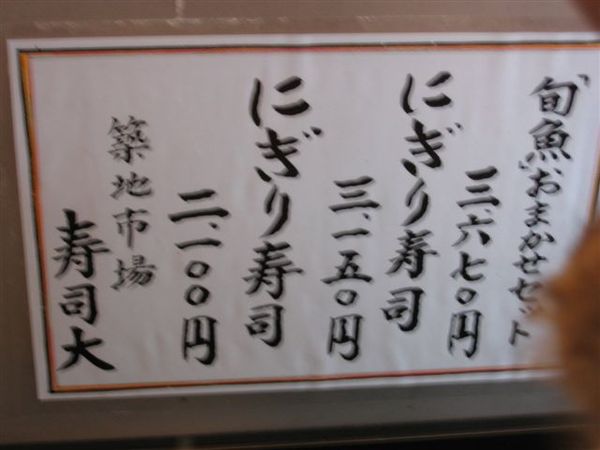 旬魚おまかせセット
三、六七〇円
にぎり寿司
三、一五〇円
にぎり寿司
二、一〇〇円
築地市場
寿司大